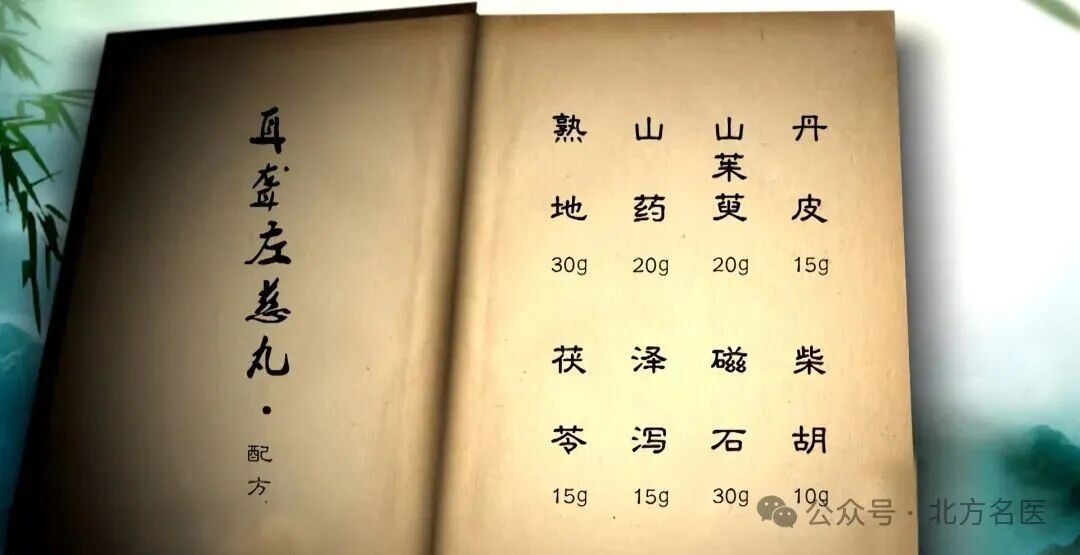 耳聋左慈丸·配方
熟地 山药 山茱萸 丹皮
30g 20g 20g 15g
茯苓 泽泻 磁石 柴胡
15g 15g 30g 10g
公众号·北方名医